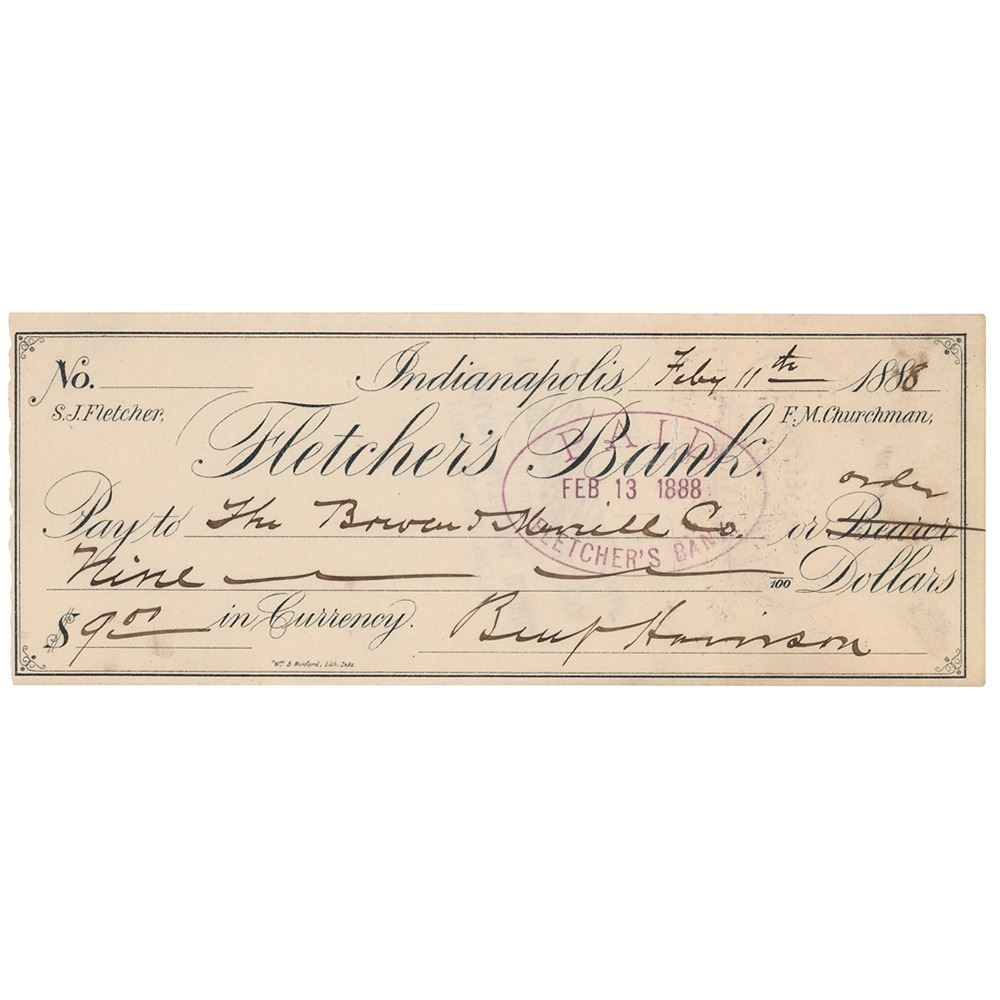 No. Indianapolis, Feby 11th 1888
S.J. Fletcher, F.M. Churchman,
Fletcher's Bank.
PAID
FEB 13 1888
FLETCHER'S BANK
order
Pay to The Bowen Merrill Co. or Bearer
Nine 100 Dollars
$9.00 in Currency. Benj Harrison
Wm. B. Burford, Lith. Inds